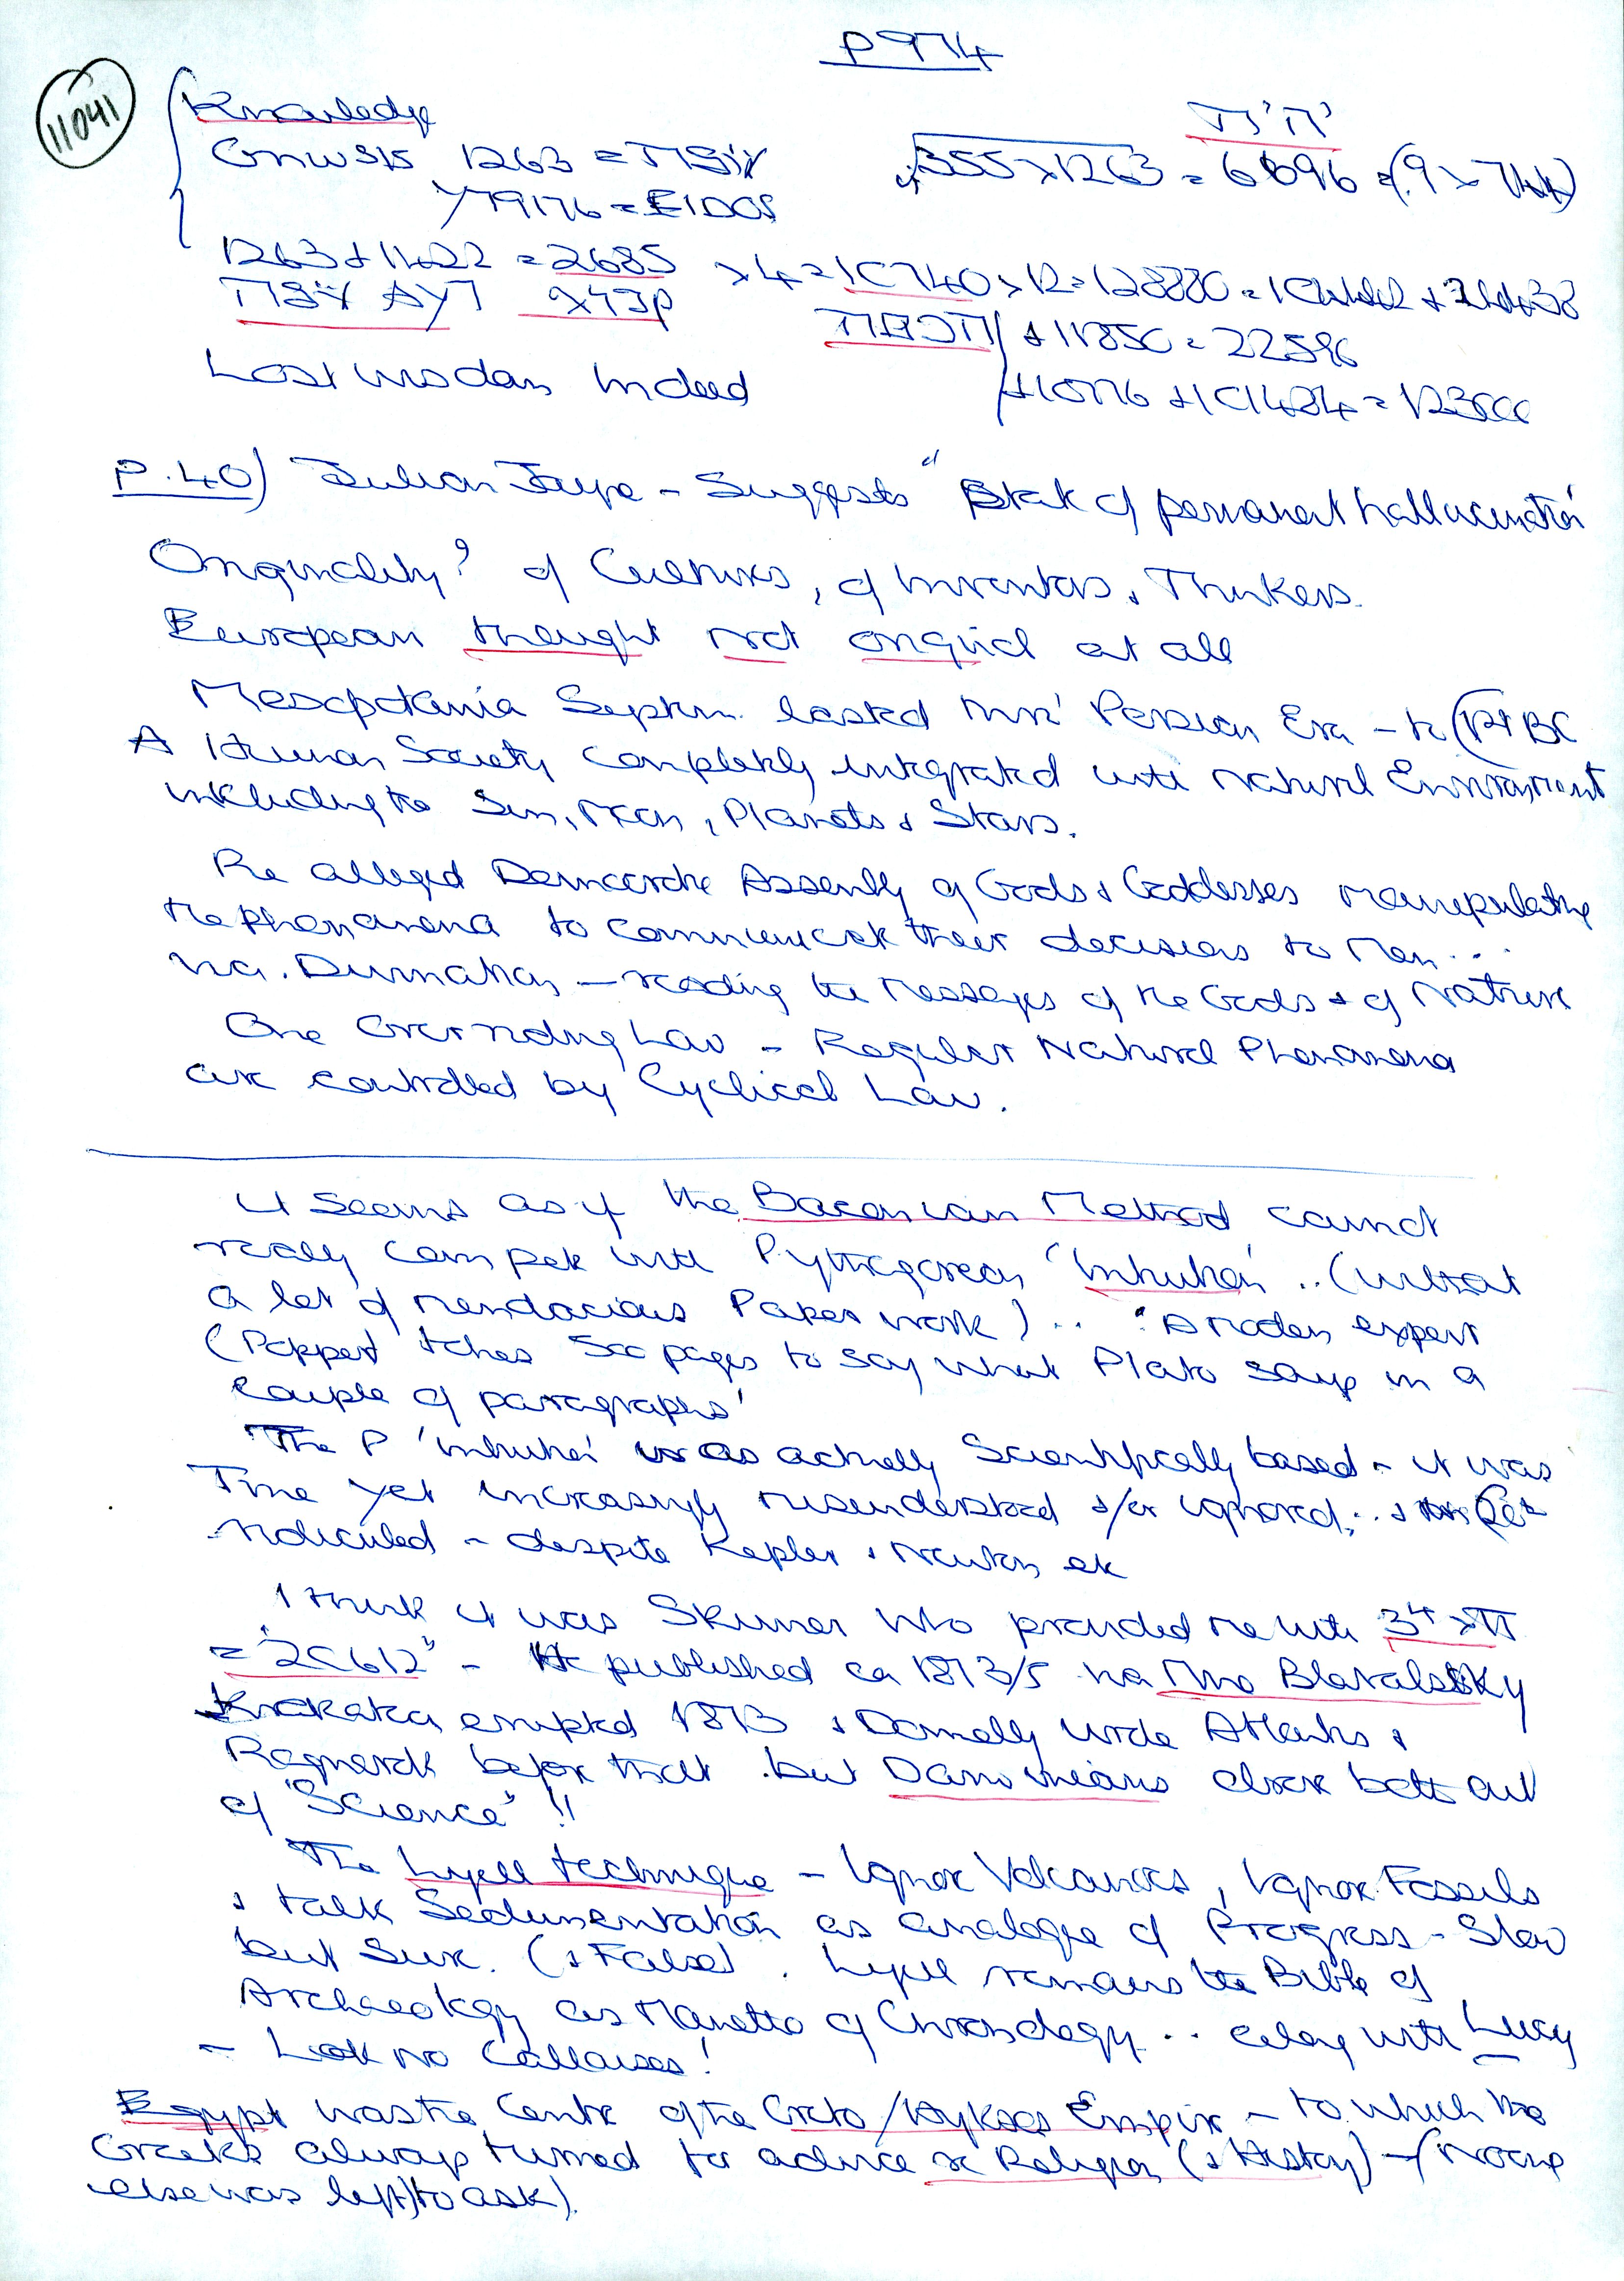 P974
11041
Knowledge
Gnwsis 1263 =
= EIDOS
√355 x 1263 = 6696 = (9 x 744)
1263 + 1422 = 2685 x 4 = 10740 x 12 = 128880 =
+ 11850 = 22596
= 123000
Lost wisdom Indeed
P.40) Julian Jaype - Suggests "State of permanent hallucination
Originality? of Cultures, of Inventors, Thinkers.
European thought not original at all
Mesopotamia System lasted thru' Persian Era - to BC
A Human Society completely integrated with Natural Environment
including the Sun, Moon, Planets & Stars.
The alleged Democratic Assembly of Gods & Goddesses manipulating
the phenomena to communicate their decisions to Men...
via. Divination - reading the Messages of the Gods & of Nature
One Overriding Law - Regular Natural Phenomena
are controlled by Cyclical Law.
It seems as if the Baconian Method cannot
really compete with Pythagorean 'Intuition' .. (without
a lot of mendacious Paper work) .. A modern expert
(Popper) takes 500 pages to say what Plato says in a
couple of paragraphs'
The P 'intuition' was actually Scientifically based - it was
True yet increasingly misunderstood &/or ignored .. &
ridiculed - despite Kepler & Newton etc
I think it was Skinner who provided me with 3⁴ x π
= "20612" - published ca 1873/5 via Mme Blavatsky
Krakatoa erupted 1873 & Donnelly wrote Atlantis &
Ragnarok before that but Darwinians chuck both out
of "Science" !!
The Lyell technique - Ignore Volcanoes, Ignore Fossils
& talk Sedimentation as analogue of Progress - Slow
but Sure. (& False). Lyell remains the Bible of
Archaeology as Manetho of Chronology .. along with Lucy
- Look no Callouses!
Egypt was the Centre of the Creto/Hyksos Empire - to which the
Greeks always turned for advice re Religion (& History) - (No one
else was left) to ask).